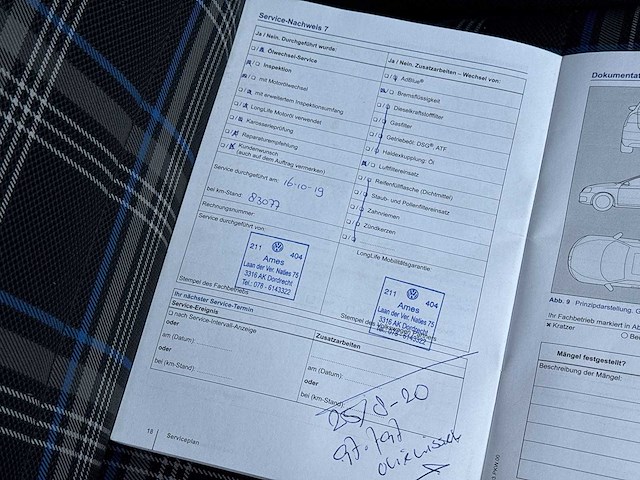 Service-Nachweis 7
Ja / Nein. Durchgeführt wurde:
Ölwechsel-Service
Inspektion
mit Motorölwechsel
mit erweitertem Inspektionsumfang
LongLife Motoröl verwendet
Karosserieprüfung
Reparaturempfehlung
Kundenwunsch
(auch auf dem Auftrag vermerken)
Service durchgeführt am: 16-10-19
bei km-Stand: 83077
Rechnungsnummer:
Service durchgeführt von:
211 404
Ames
Laan der Ver. Naties 75
3316 AK Dordrecht
Tel.: 078 - 6143322
Stempel des Fachbetriebs
Ja / Nein. Zusatzarbeiten – Wechsel von:
AdBlue®
Bremsflüssigkeit
Dieselkraftstofffilter
Gasfilter
Getriebeöl: DSG®, ATF
Haldexkupplung: Öl
Luftfiltereinsatz
Reifenfüllflasche (Dichtmittel)
Staub- und Pollenfiltereinsatz
Zahnriemen
Zündkerzen
LongLife Mobilitätsgarantie:
211 404
Ames
Laan der Ver. Naties 75
3316 AK Dordrecht
Tel.: 078 - 6143322
Stempel des Volkswagen Partners
Ihr nächster Service-Termin
Service-Ereignis
nach Service-Intervall-Anzeige
oder
am (Datum):
oder
bei (km-Stand):
Zusatzarbeiten
am (Datum):
oder
bei (km-Stand):
97.797
18
Serviceplan
Dokumentat
Abb. 9 Prinzipdarstellung. G
Ihr Fachbetrieb markiert in Ab
Kratzer
Mängel festgestellt?
Beschreibung der Mängel: